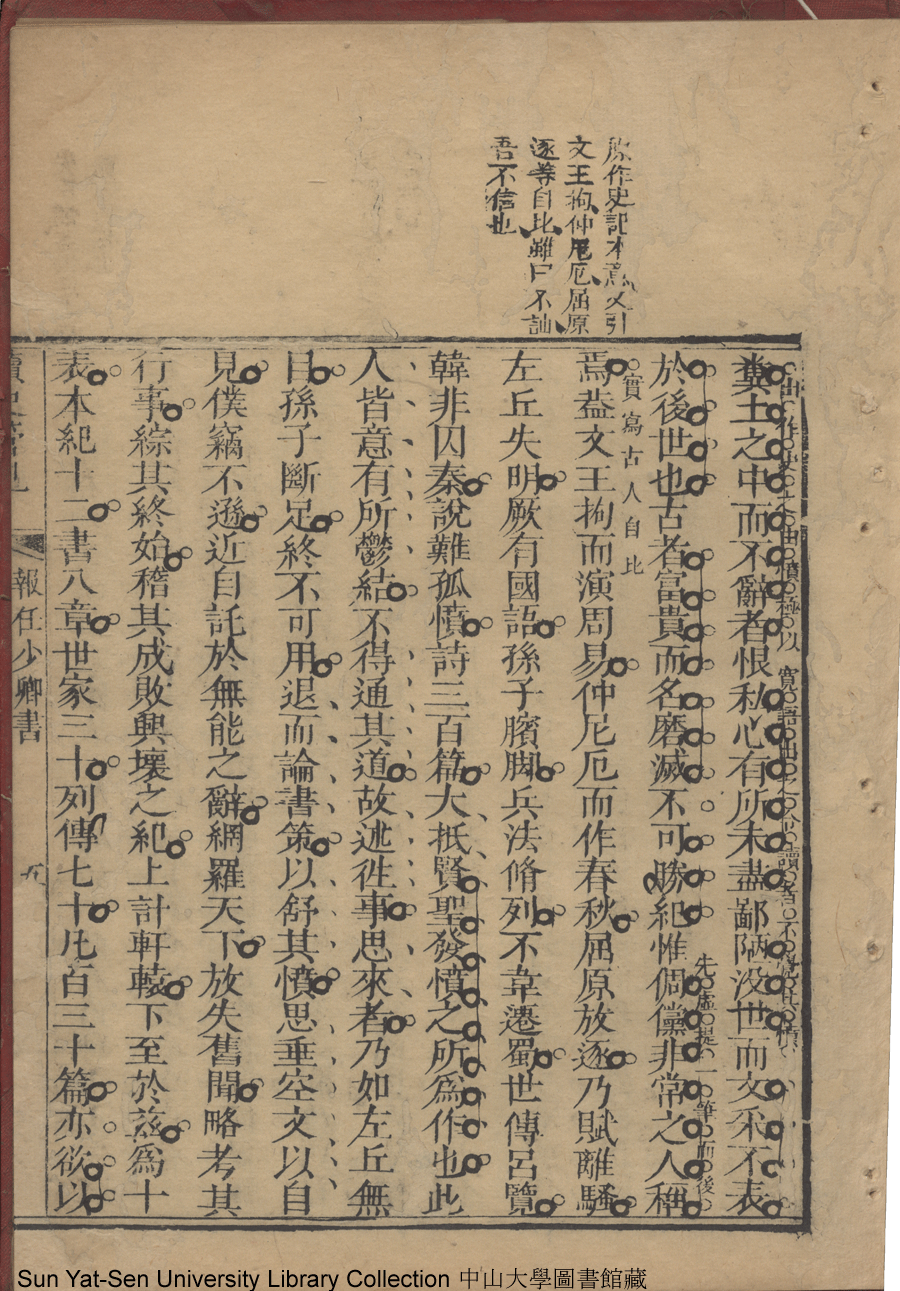 原作史記本意又引
文王拘仲尼厄屈原
逐等自比雖曰不訕
吾不信也
糞土之中而不辭者恨私心有所未盡鄙陋没世而文采不表
先虛提一筆而後
於後世也古者富貴而名磨滅不可勝紀惟倜儻非常之人稱
實寫古人自比
焉葢文王拘而演周易仲尼厄而作春秋屈原放逐乃賦離騷
左丘失明厥有國語孫子臏脚兵法脩列不韋遷蜀世傳呂覽
韓非囚秦說難孤憤詩三百篇大抵賢聖發憤之所爲作也此
人皆意有所鬱結不得通其道故述徃事思來者乃如左丘無
目孫子斷足終不可用退而論書策以舒其憤思垂空文以自
見僕竊不遜近自託於無能之辭網羅天下放失舊聞略考其
行事綜其終始稽其成敗興壞之紀上計軒轅下至於兹爲十
表本紀十二書八章世家三十列傳七十凡百三十篇亦欲以
報任少卿書
五
Sun Yat-Sen University Library Collection 中山大學圖書館藏